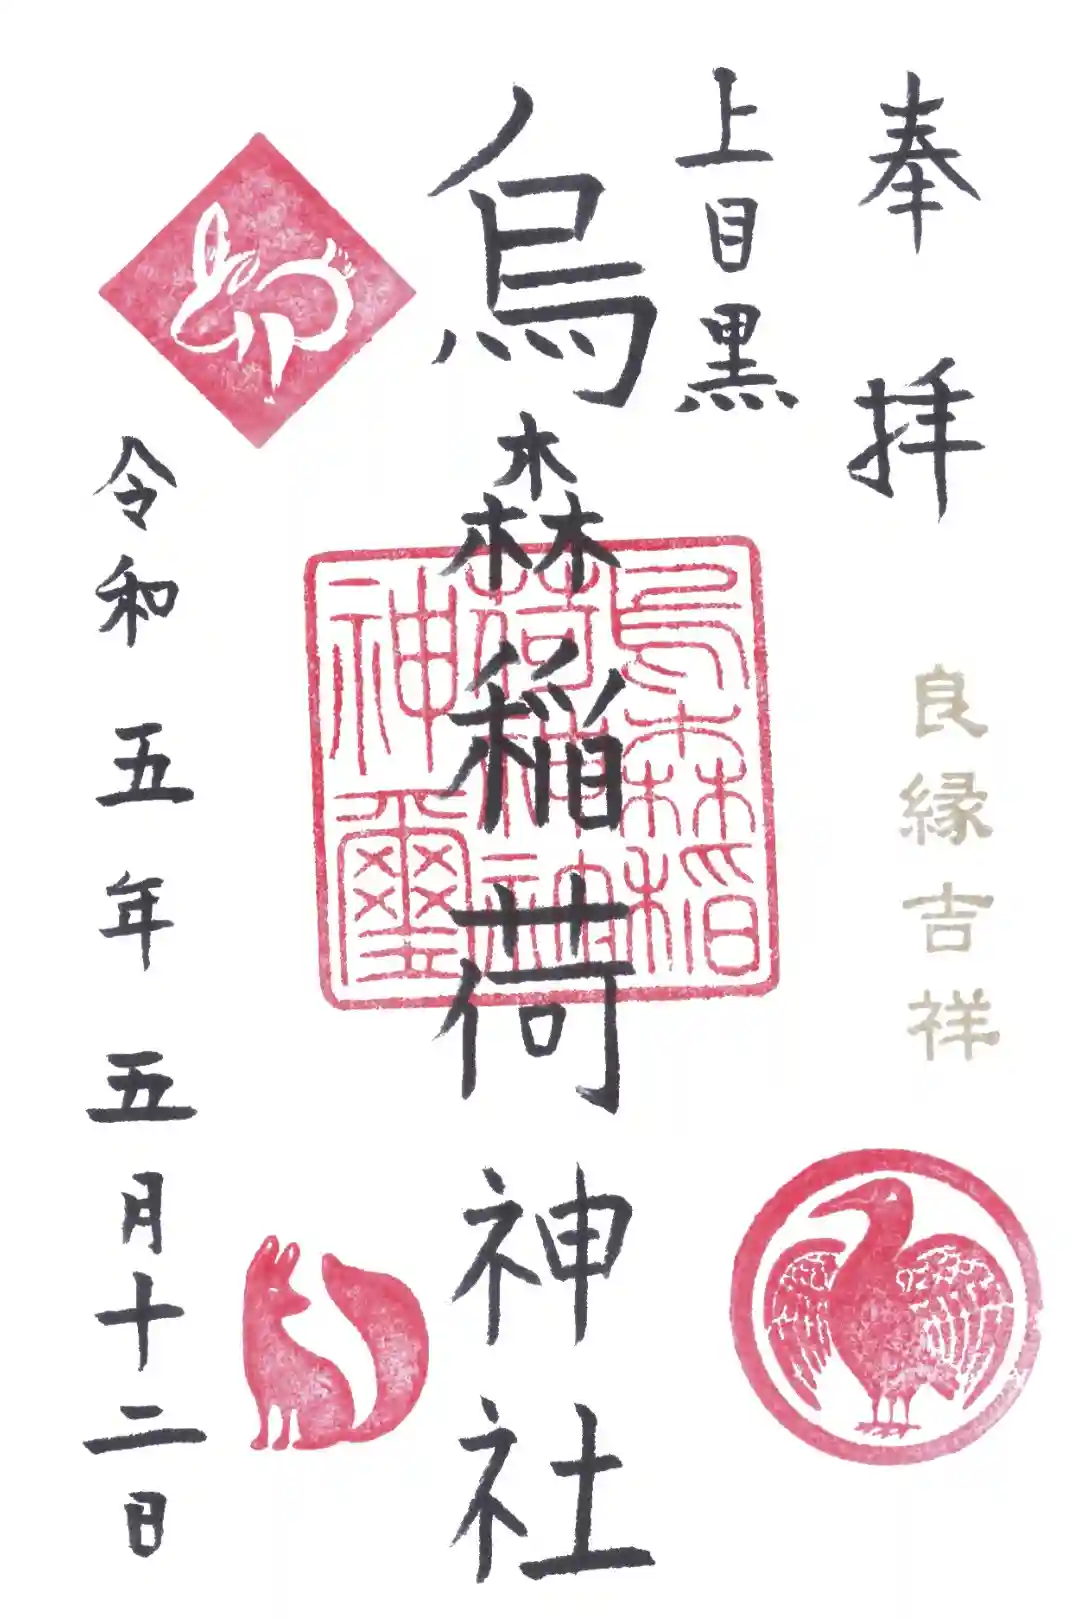 奉拝
良縁吉祥
上目黒
烏森稲荷神社
烏森稲
荷神社
神璽
令和五年五月十二日